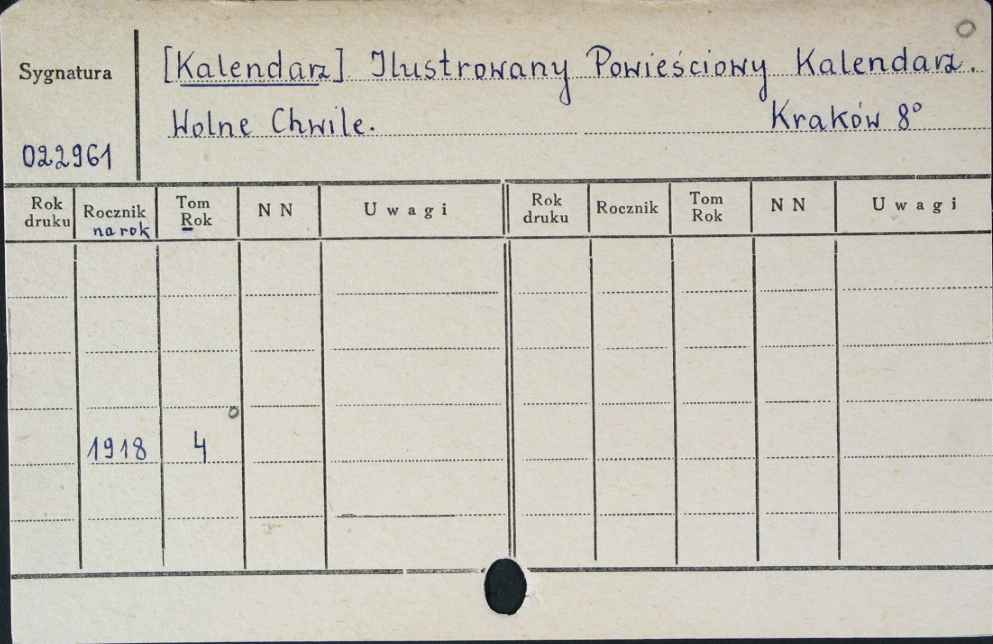 [Kalendarz] Ilustrowany Powieściowy Kalendarz.
Sygnatura
Wolne Chwile. Kraków 8°
022961
Rok druku Rocznik na rok Tom Rok N N Uwagi Rok druku Rocznik Tom Rok N N Uwagi
1918 4